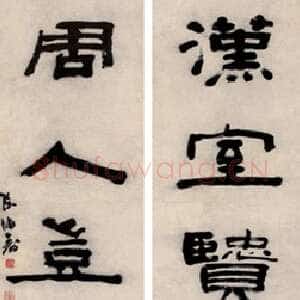 漢室賢
周人豈
shufawang.cn